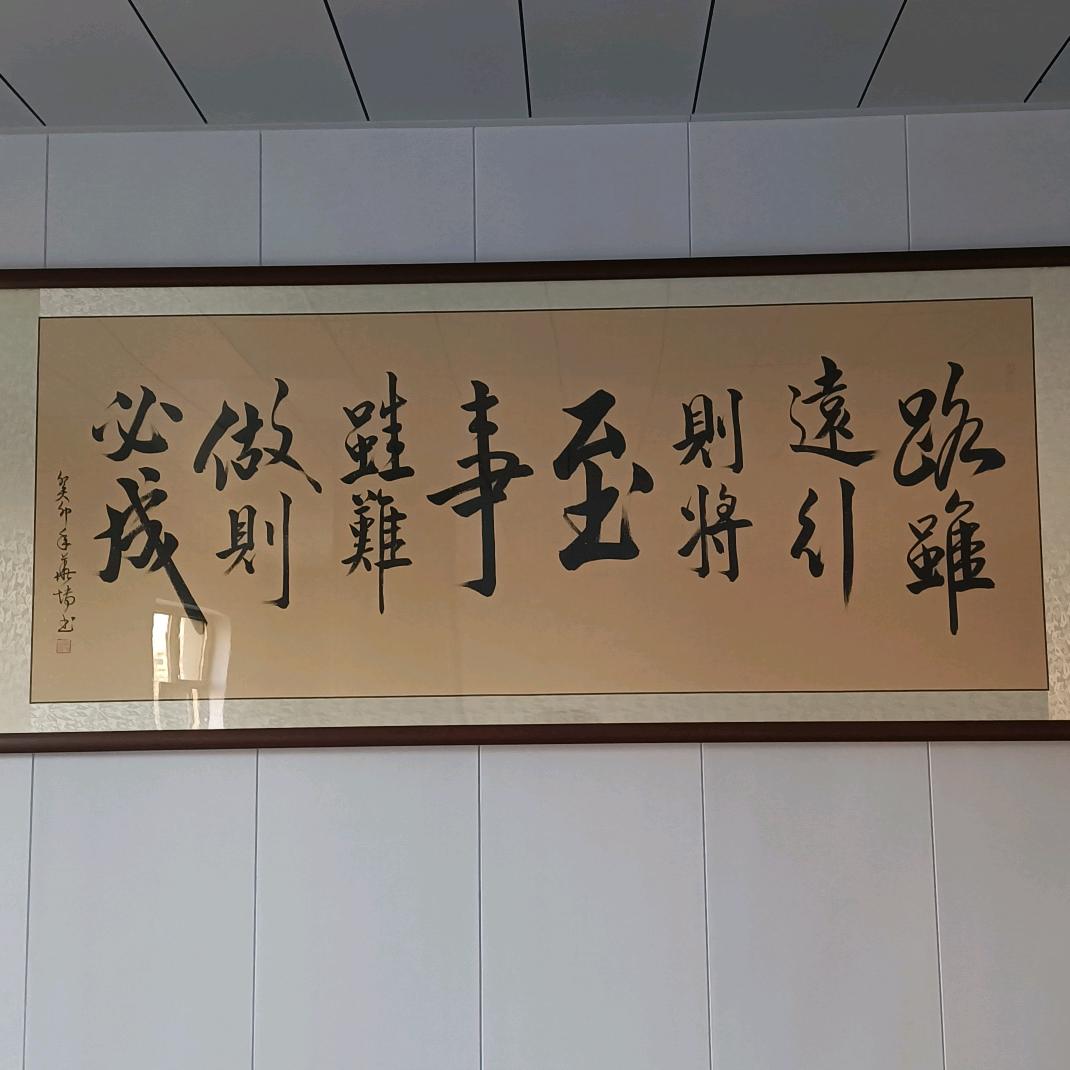 路雖
遠行
則將
至
事
雖難
做則
必成
癸卯年 书